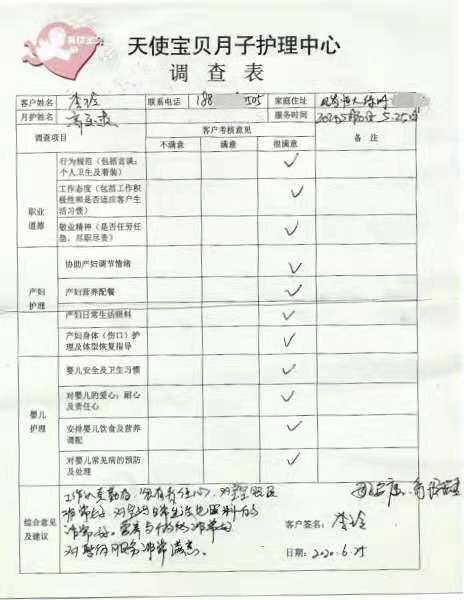 天使宝贝
天使宝贝月子护理中心
调查表
客户姓名 李玲 联系电话 188 505 家庭住址
月护姓名 服务时间 5.25
调查项目 客户考核意见 备 注
不满意 满意 很满意
职业道德
行为规范（包括言谈；个人卫生及着装） ✓
工作态度（包括工作积极性和是否适应客户生活习惯） ✓
敬业精神（是否任劳任怨；尽职尽责） ✓
产妇护理
协助产妇调节情绪 ✓
产妇营养配餐 ✓
产妇日常生活照料 ✓
产妇身体（伤口）护理及体型恢复指导 ✓
婴儿护理
婴儿安全及卫生习惯 ✓
对婴儿的爱心；耐心及责任心 ✓
安排婴儿饮食及营养调配 ✓
对婴儿常见病的预防及处理 ✓
综合意见及建议
工作认真勤奋，富有责任心，对宝宝
非常好，对宝妈日常生活也照料的
非常好，营养与
对整体服务非常满意。
客户签名： 李玲
日期： 2020.6.25